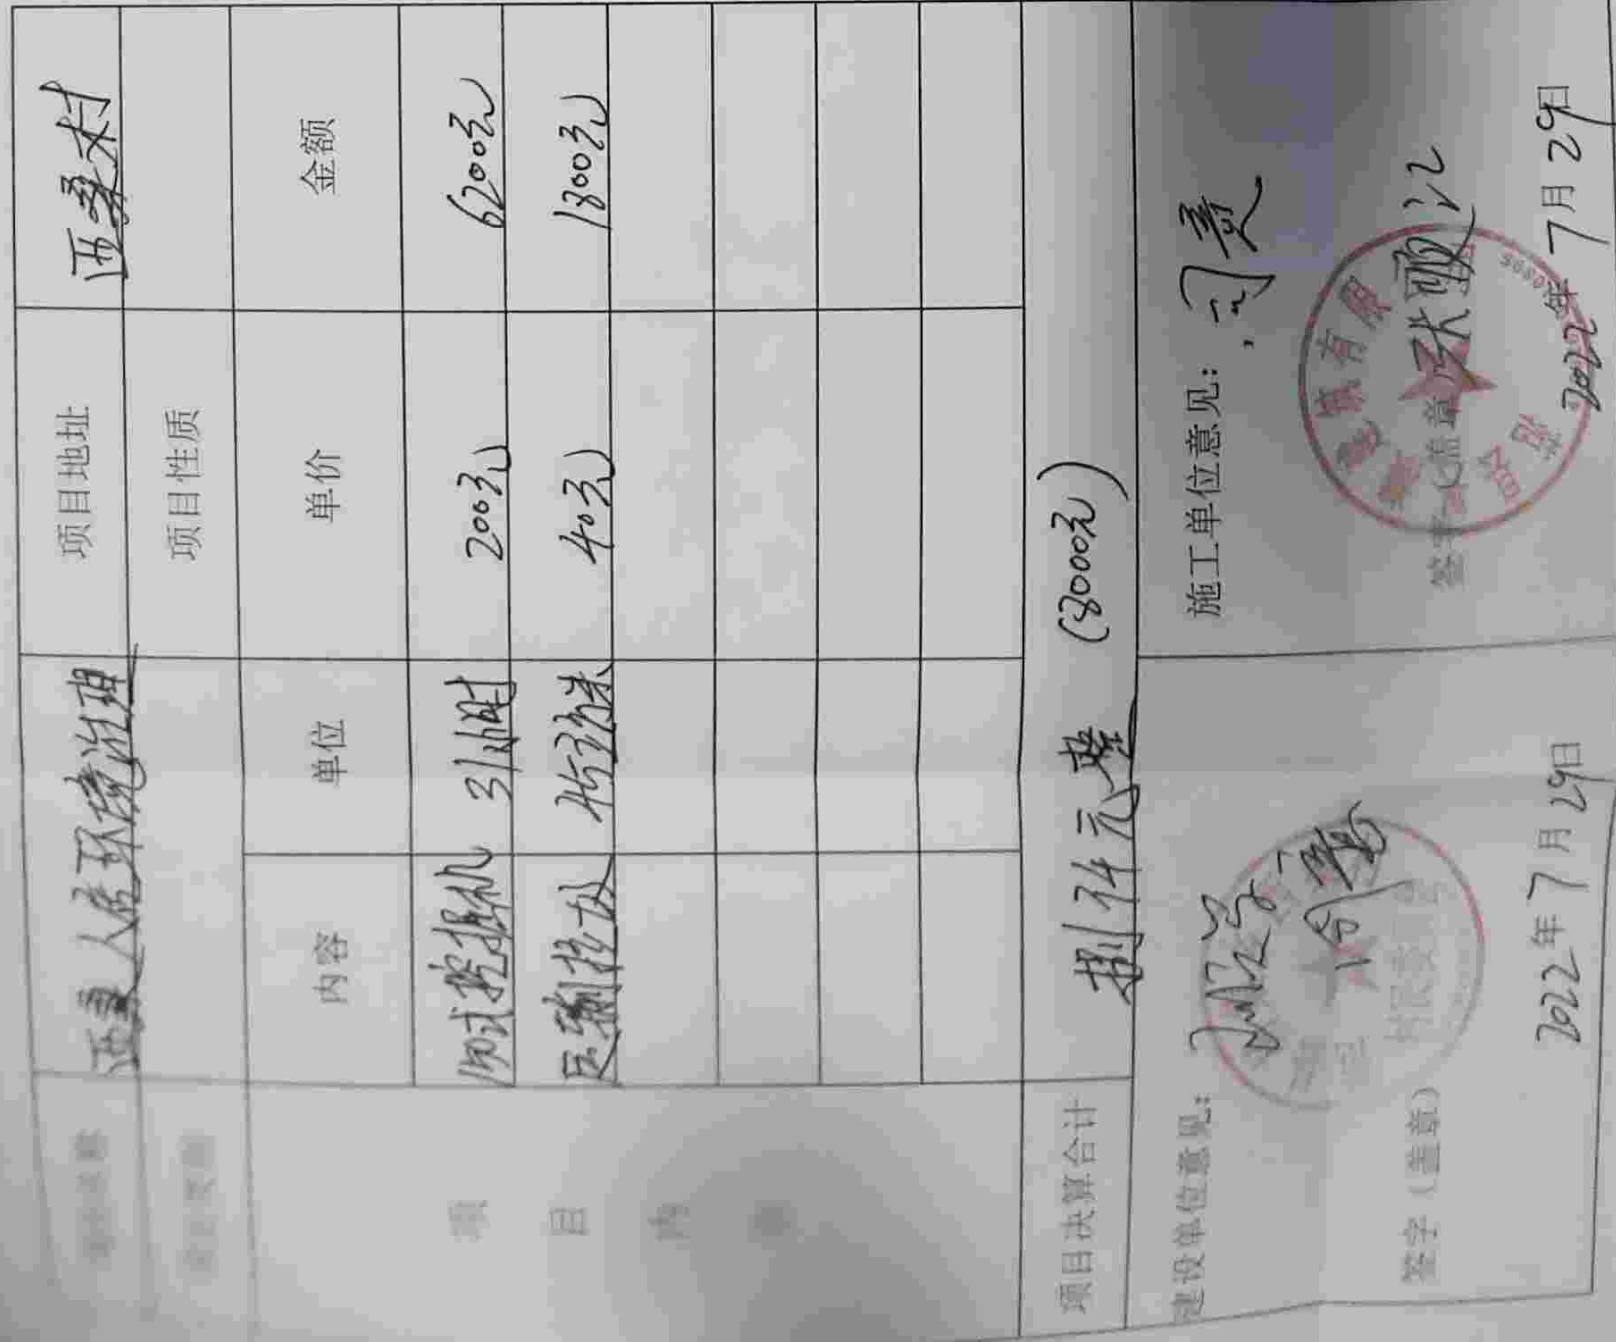 西桑人居环境治理 项目地址 西桑村
项目性质
内容 单位 单价 金额
150式挖掘机 31小时 200元 6200元
40元 1800元
项
目
内
项目决算合计 捌仟元整 (8000元)
建设单位意见:
签字(盖章)
2022年7月29日
施工单位意见: 同意
签字(盖章)
2022年7月29日